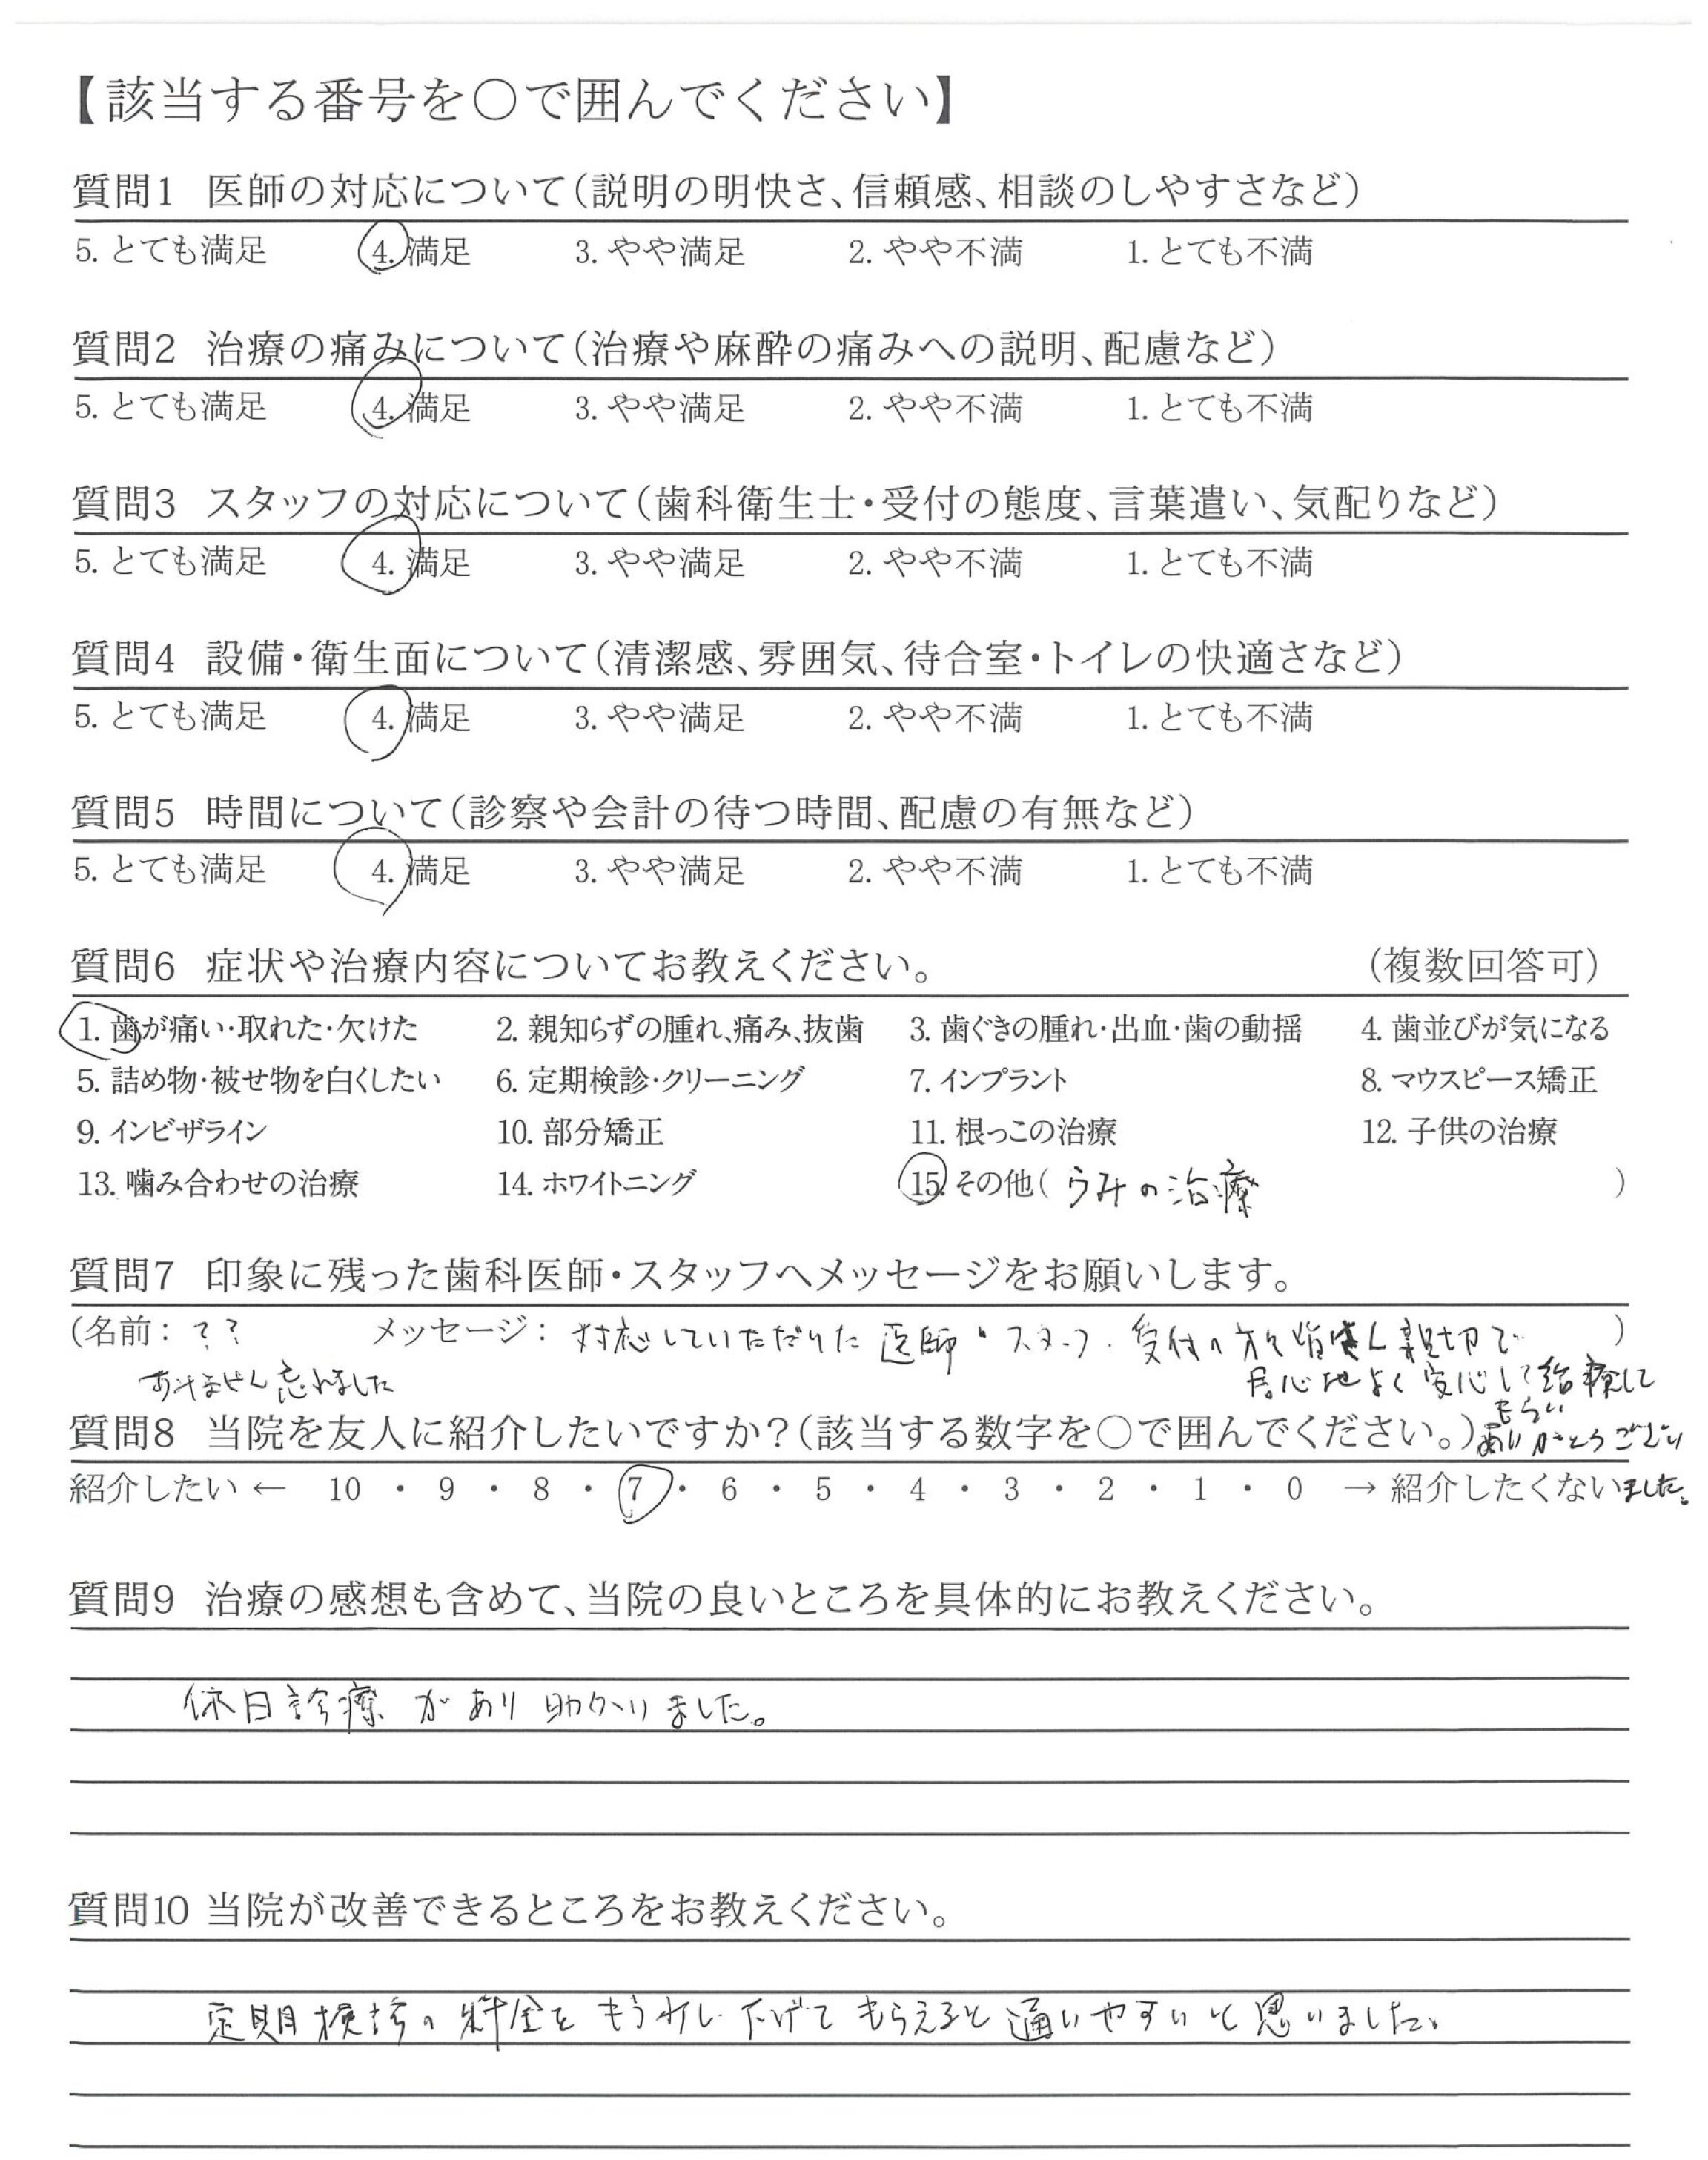 【該当する番号を○で囲んでください】
質問1 医師の対応について(説明の明快さ、信頼感、相談のしやすさなど)
5. とても満足 4. 満足 3. やや満足 2. やや不満 1. とても不満
質問2 治療の痛みについて(治療や麻酔の痛みへの説明、配慮など)
5. とても満足 4. 満足 3. やや満足 2. やや不満 1. とても不満
質問3 スタッフの対応について(歯科衛生士・受付の態度、言葉遣い、気配りなど)
5. とても満足 4. 満足 3. やや満足 2. やや不満 1. とても不満
質問4 設備・衛生面について(清潔感、雰囲気、待合室・トイレの快適さなど)
5. とても満足 4. 満足 3. やや満足 2. やや不満 1. とても不満
質問5 時間について(診察や会計の待つ時間、配慮の有無など)
5. とても満足 4. 満足 3. やや満足 2. やや不満 1. とても不満
質問6 症状や治療内容についてお教えください。 (複数回答可)
1. 歯が痛い・取れた・欠けた 2. 親知らずの腫れ、痛み、抜歯 3. 歯ぐきの腫れ・出血・歯の動揺 4. 歯並びが気になる
5. 詰め物・被せ物を白くしたい 6. 定期検診・クリーニング 7. インプラント 8. マウスピース矯正
9. インビザライン 10. 部分矯正 11. 根っこの治療 12. 子供の治療
13. 噛み合わせの治療 14. ホワイトニング 15. その他( うみの治療 )
質問7 印象に残った歯科医師・スタッフへメッセージをお願いします。
(名前: ?? メッセージ: 対応していただいた医師・スタッフ・受付の方々皆さん親切で )
すみません忘れました 居心地よく安心して治療して
もらい
質問8 当院を友人に紹介したいですか?(該当する数字を○で囲んでください。) ありがとうござい
紹介したい ← 10 ・ 9 ・ 8 ・ 7 ・ 6 ・ 5 ・ 4 ・ 3 ・ 2 ・ 1 ・ 0 → 紹介したくない ました。
質問9 治療の感想も含めて、当院の良いところを具体的にお教えください。
休日診療があり助かりました。
質問10 当院が改善できるところをお教えください。
定期検診の料金をもう少し下げてもらえると通いやすいと思いました。